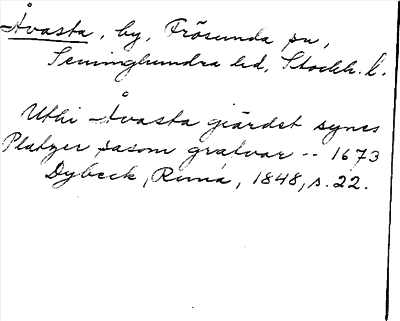 Åvasta, by, Frösunda sn,
Seminghundra hd, Stockh. l.
Uthi Åvasta giärdet synes
Platzer sasom grafvar -- 1673
Dybeck, Runa, 1848, s. 22.